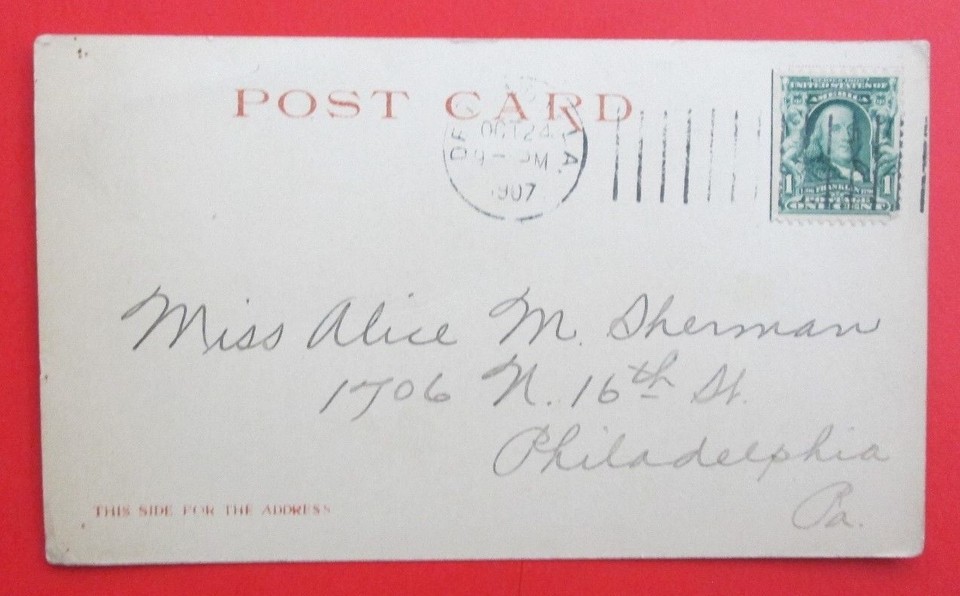 POST CARD
OCT 24
9 - PM
1907
UNITED STATES OF
AMERICA
1 FRANKLIN 1
POSTAGE
ONE CENT
Miss Alice M. Sherman
1706 N. 16th St.
Philadelphia
Pa.
THIS SIDE FOR THE ADDRESS